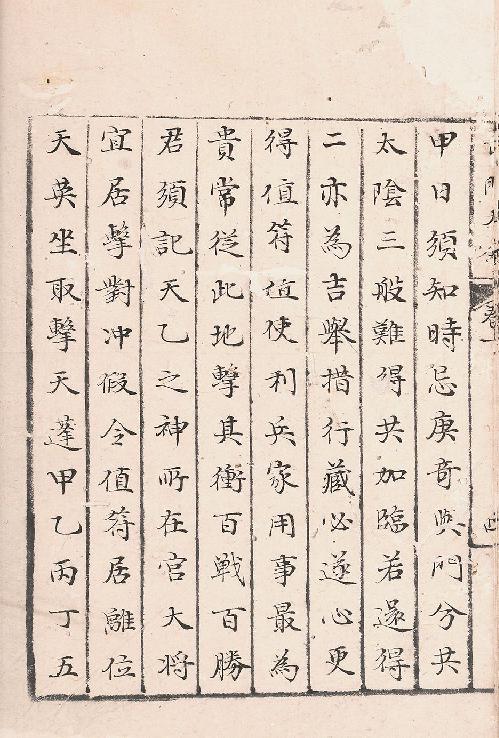 甲日須知時忌庚竒與門兮共
太陰三般難得共加臨若還得
二亦為吉舉措行藏必遂心更
得值符值使利兵家用事最為
貴常從此地擊其衝百戦百勝
君須記天乙之神所在宮大将
宜居擊對冲假令值符居離位
天英坐取擊天蓬甲乙丙丁五